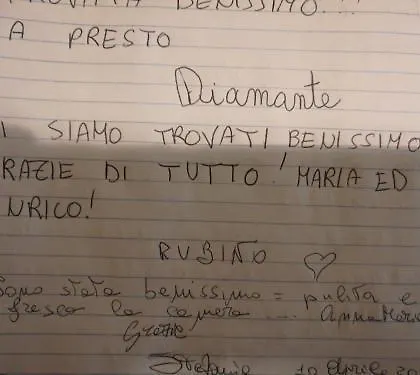 TROVATA BENISSIMO...!
A PRESTO
Diamante
I SIAMO TROVATI BENISSIMO
RAZIE DI TUTTO! MARIA ED
NRICO!
RUBINO ♡
Sono stata benissimo = pulita e
fresca la camera ....
Grazie
Stefania 10 Aprile